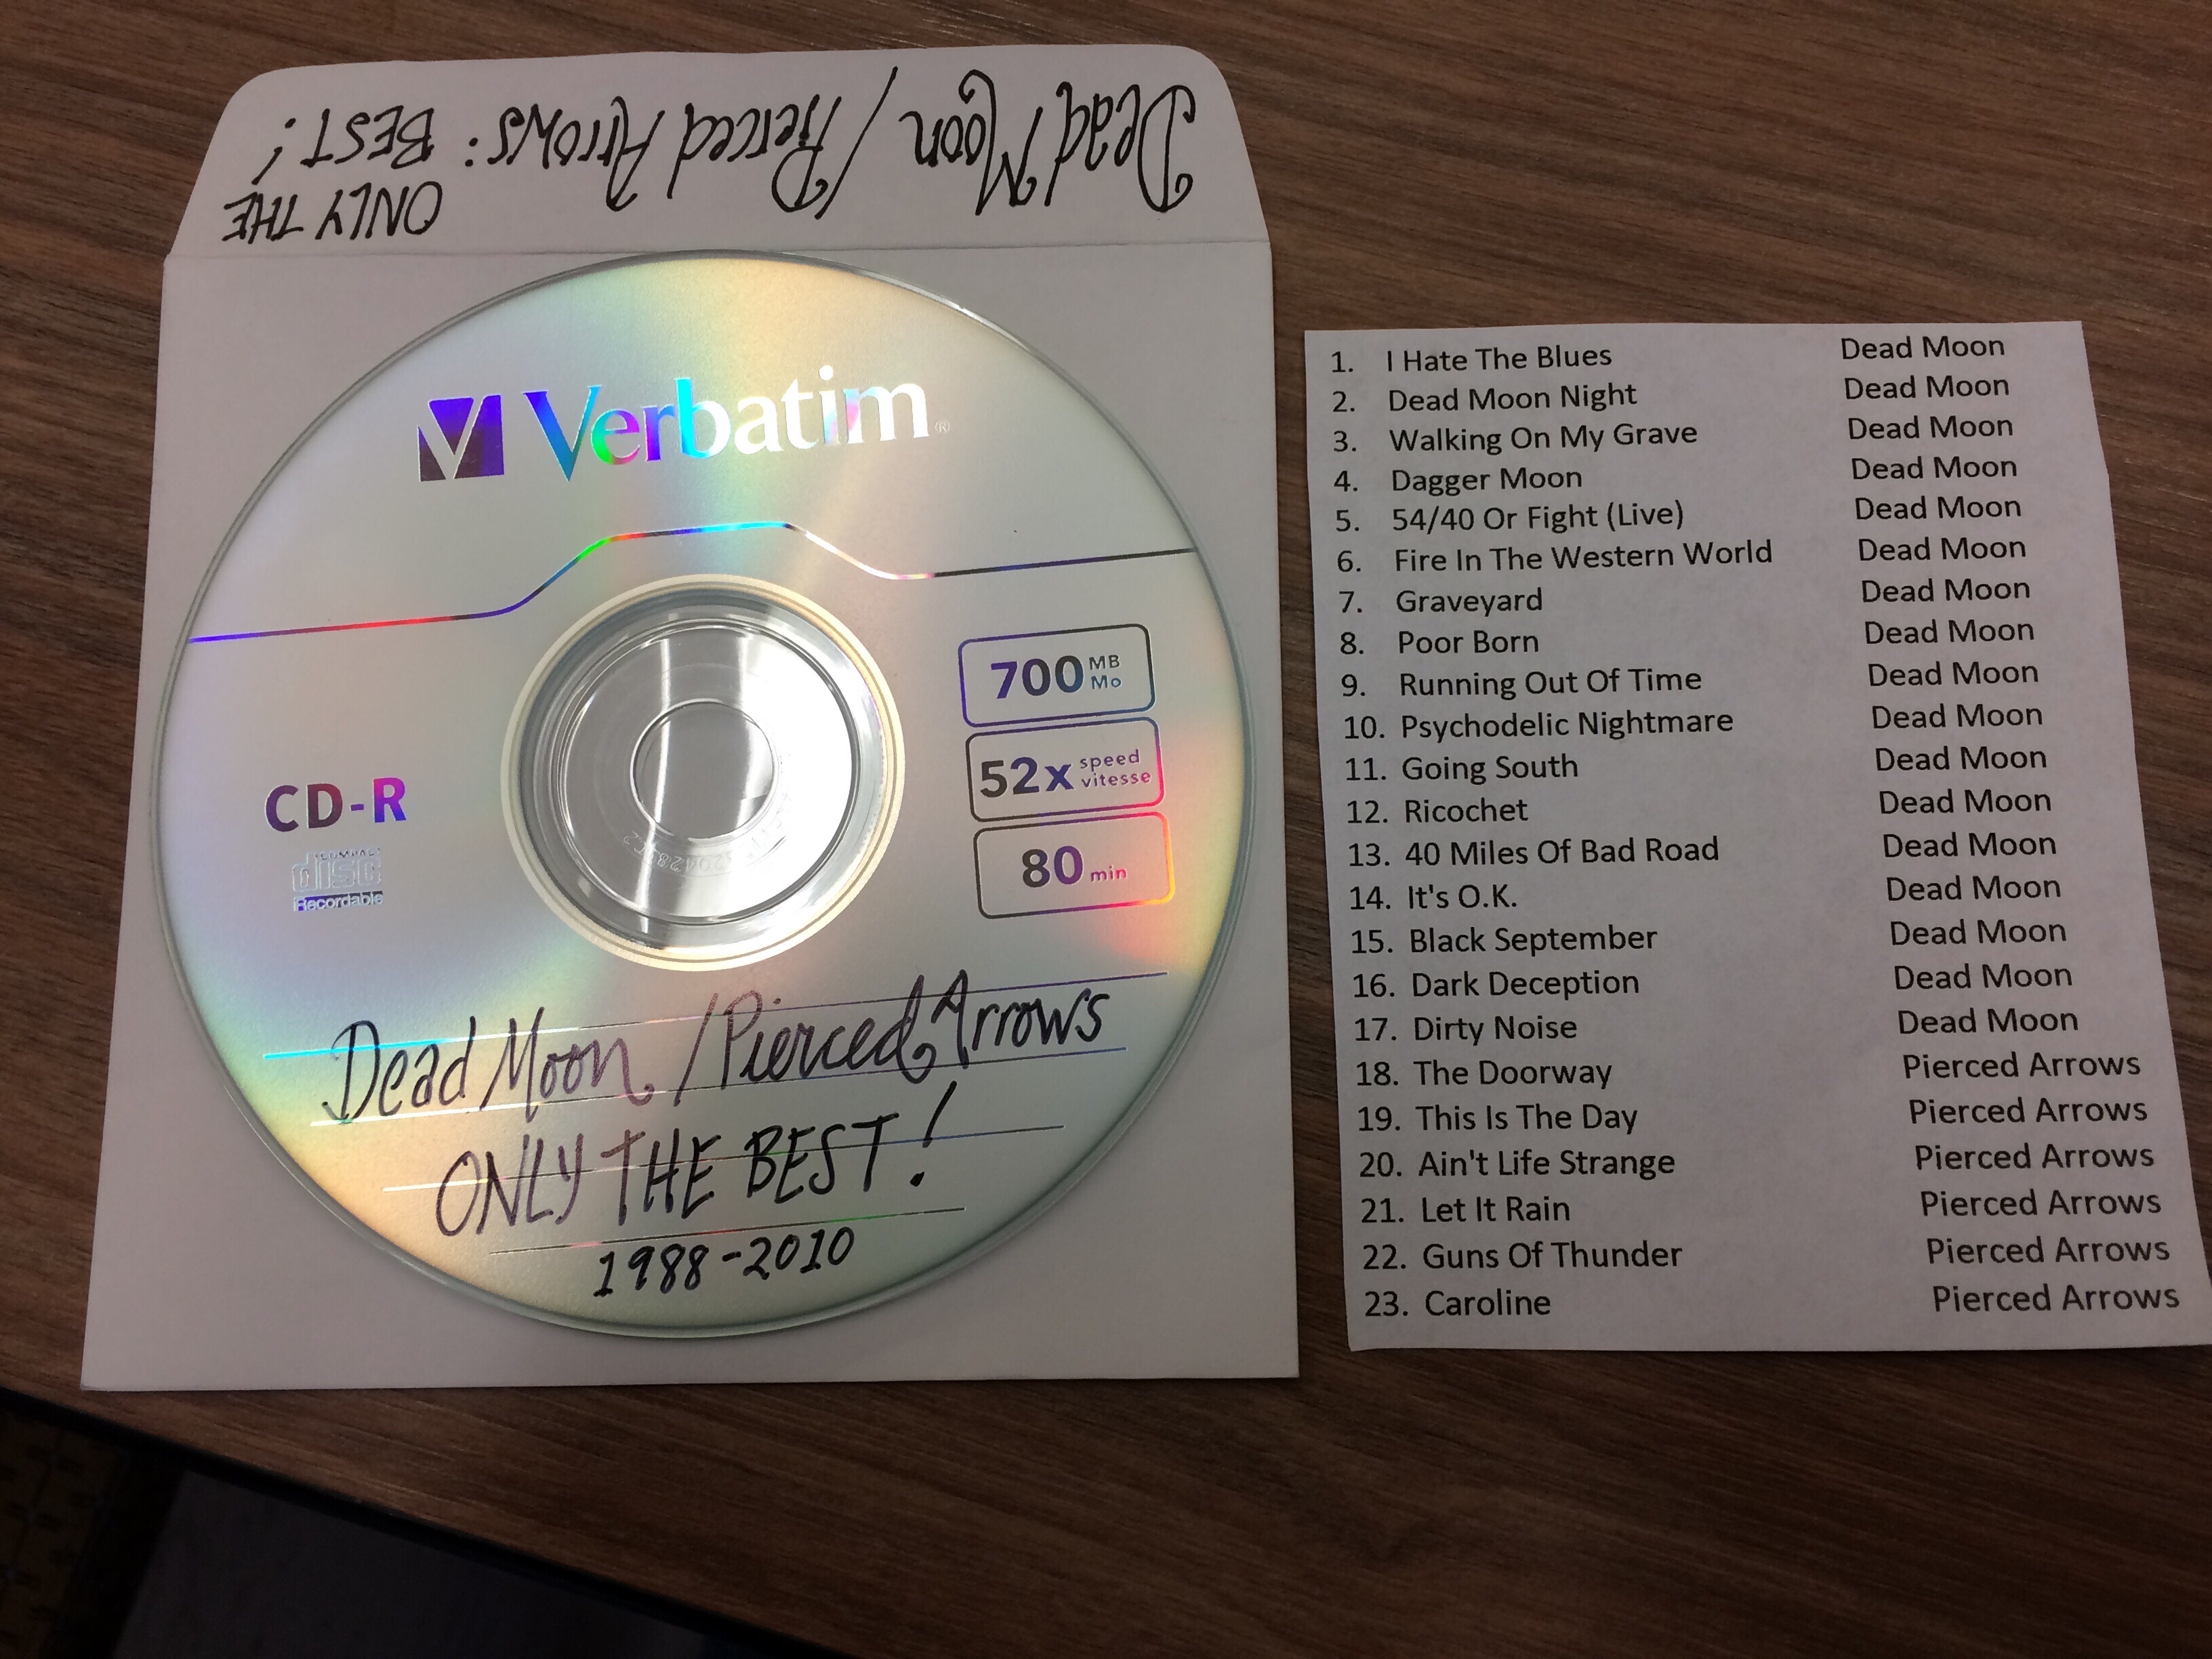 Dead Moon / Pierced Arrows: ONLY THE BEST!
Verbatim®
700 MB Mo
52x speed vitesse
80 min
CD-R
COMPACT
disc
Recordable
Dead Moon / Pierced Arrows
ONLY THE BEST!
1988-2010
1. I Hate The Blues Dead Moon
2. Dead Moon Night Dead Moon
3. Walking On My Grave Dead Moon
4. Dagger Moon Dead Moon
5. 54/40 Or Fight (Live) Dead Moon
6. Fire In The Western World Dead Moon
7. Graveyard Dead Moon
8. Poor Born Dead Moon
9. Running Out Of Time Dead Moon
10. Psychodelic Nightmare Dead Moon
11. Going South Dead Moon
12. Ricochet Dead Moon
13. 40 Miles Of Bad Road Dead Moon
14. It's O.K. Dead Moon
15. Black September Dead Moon
16. Dark Deception Dead Moon
17. Dirty Noise Dead Moon
18. The Doorway Pierced Arrows
19. This Is The Day Pierced Arrows
20. Ain't Life Strange Pierced Arrows
21. Let It Rain Pierced Arrows
22. Guns Of Thunder Pierced Arrows
23. Caroline Pierced Arrows